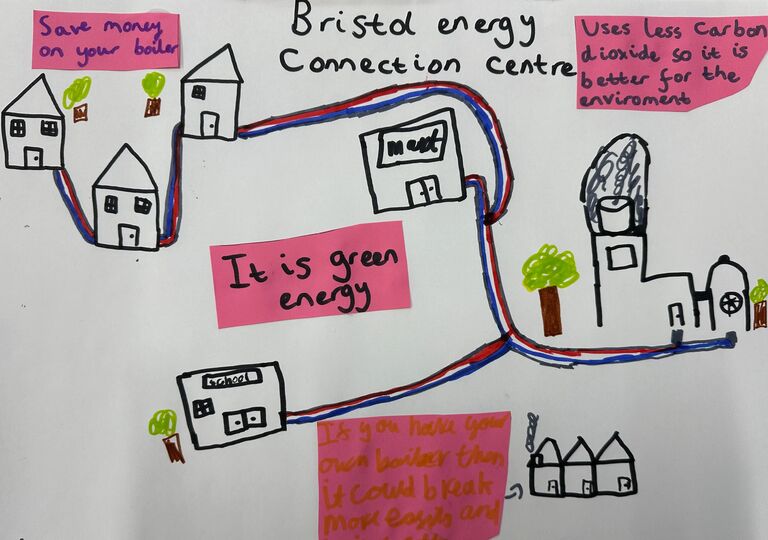 Bristol energy
Connection centre
Save money
on your boiler
Uses less Carbon
dioxide so it is
better for the
enviroment
It is green
energy
school
If you have your
own boiler then
it could break
more easily and